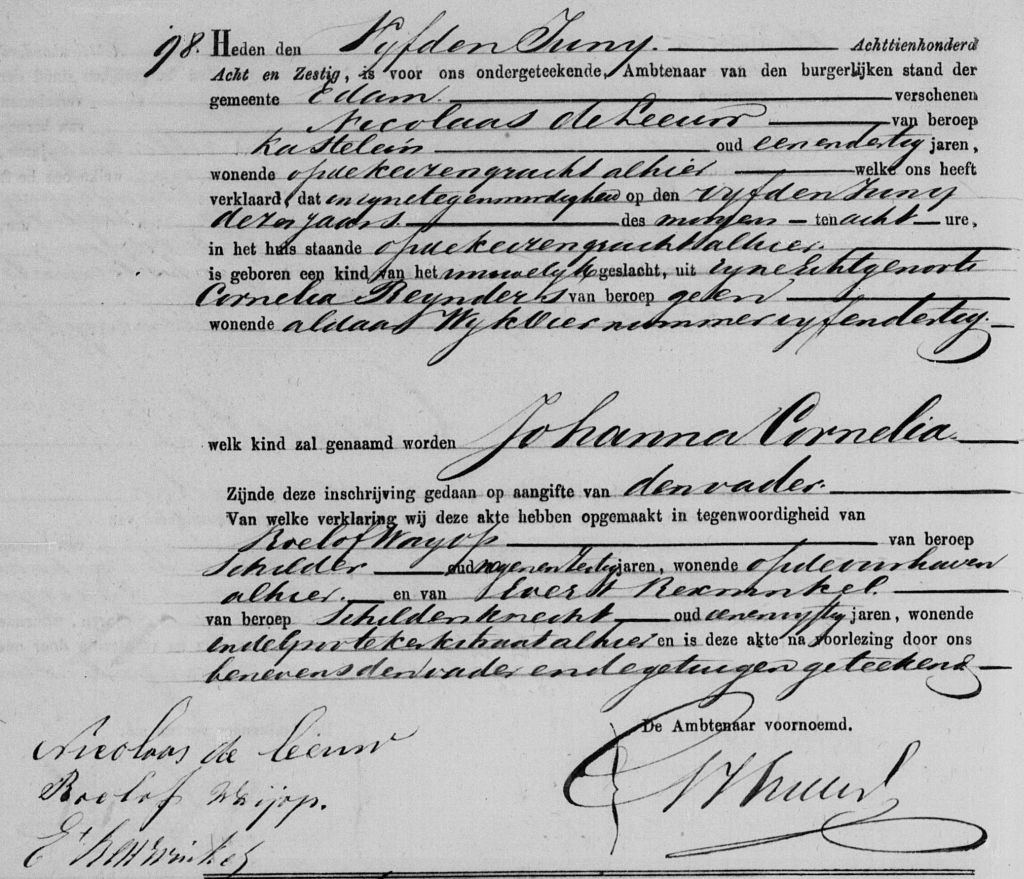 98. Heden den Vyfden Juny. Achttienhonderd
Acht en Zestig, is voor ons ondergeteekende, Ambtenaar van den burgerlijken stand der
gemeente Edam. verschenen
Nicolaas de Leeuw van beroep
Kastelein oud eenendertig jaren,
wonende op de keizengracht alhier welke ons heeft
verklaard, dat in zyne tegenwoordigheid op den vyfden Juny
dezes jaars. des morgens ten acht ure,
in het huis staande op de keizengracht alhier.
is geboren een kind van het vrouwelyk geslacht, uit zyne Echtgenoote
Cornelia Reynders van beroep geen
wonende aldaar Wyk Vier nummer vyfendertig.
welk kind zal genaamd worden Johanna Cornelia
Zijnde deze inschrijving gedaan op aangifte van den vader.
Van welke verklaring wij deze akte hebben opgemaakt in tegenwoordigheid van
Roelof van beroep
Schilder oud jaren, wonende op de
alhier. en van Evert
van beroep Schildersknecht oud jaren, wonende
in de alhier en is deze akte na voorlezing door ons
benevens den vader en de getuigen geteekend
De Ambtenaar voornoemd.
Nicolaas de Leeuw
Roelof